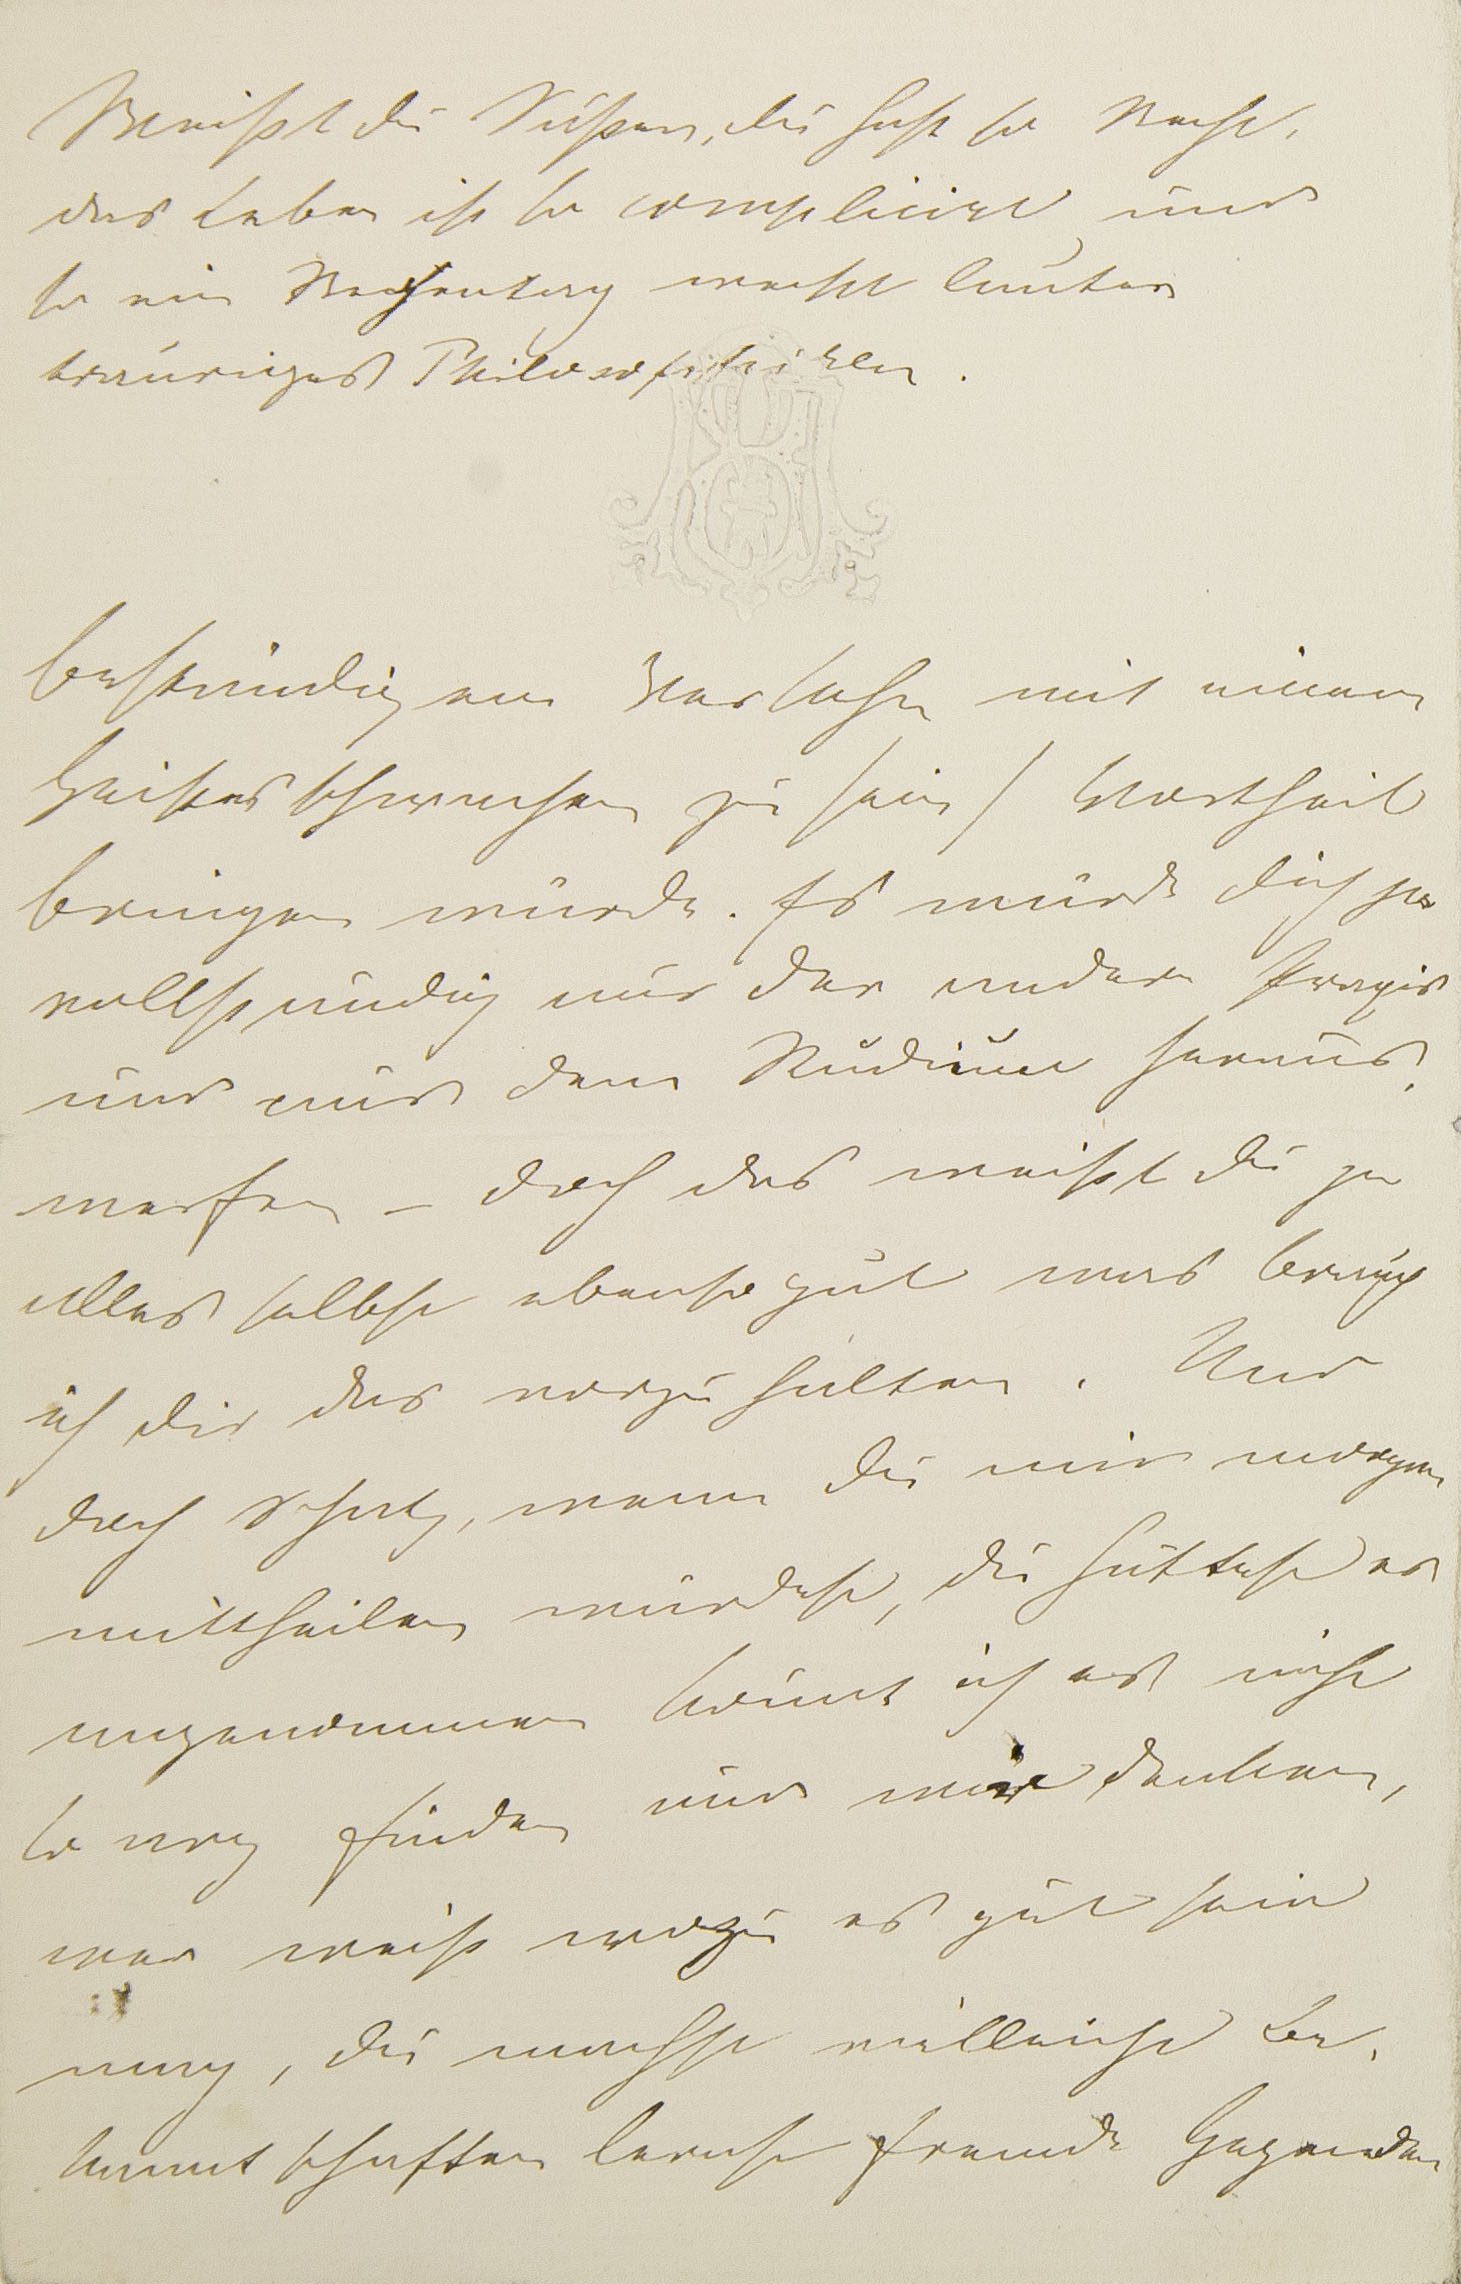 Weißt du Süßer, du hast so Recht,
das Leben ist so complicirt und
so ein Regentag macht lauter
trauriges Philosophieren.
beständigem Verkehr mit einem
Geistesschwachen zu sein / Vortheil
bringen würde. Es würde dich ja
vollständig aus der andern Praxis
und aus dem Studium heraus,
werfen – doch das weißt du ja
alles selbst ebenso gut was brauch
ich dir das vorzuhalten. Und
doch Schatz, wenn du mir morgen
mittheilen würdest, du hättest es
angenommen könnt ich es nicht
so arg finden und mir denken,
wer weiß wozu es gut sein
mag, du machst vielleicht Be,
kanntschaften lernst fremde Gegenden